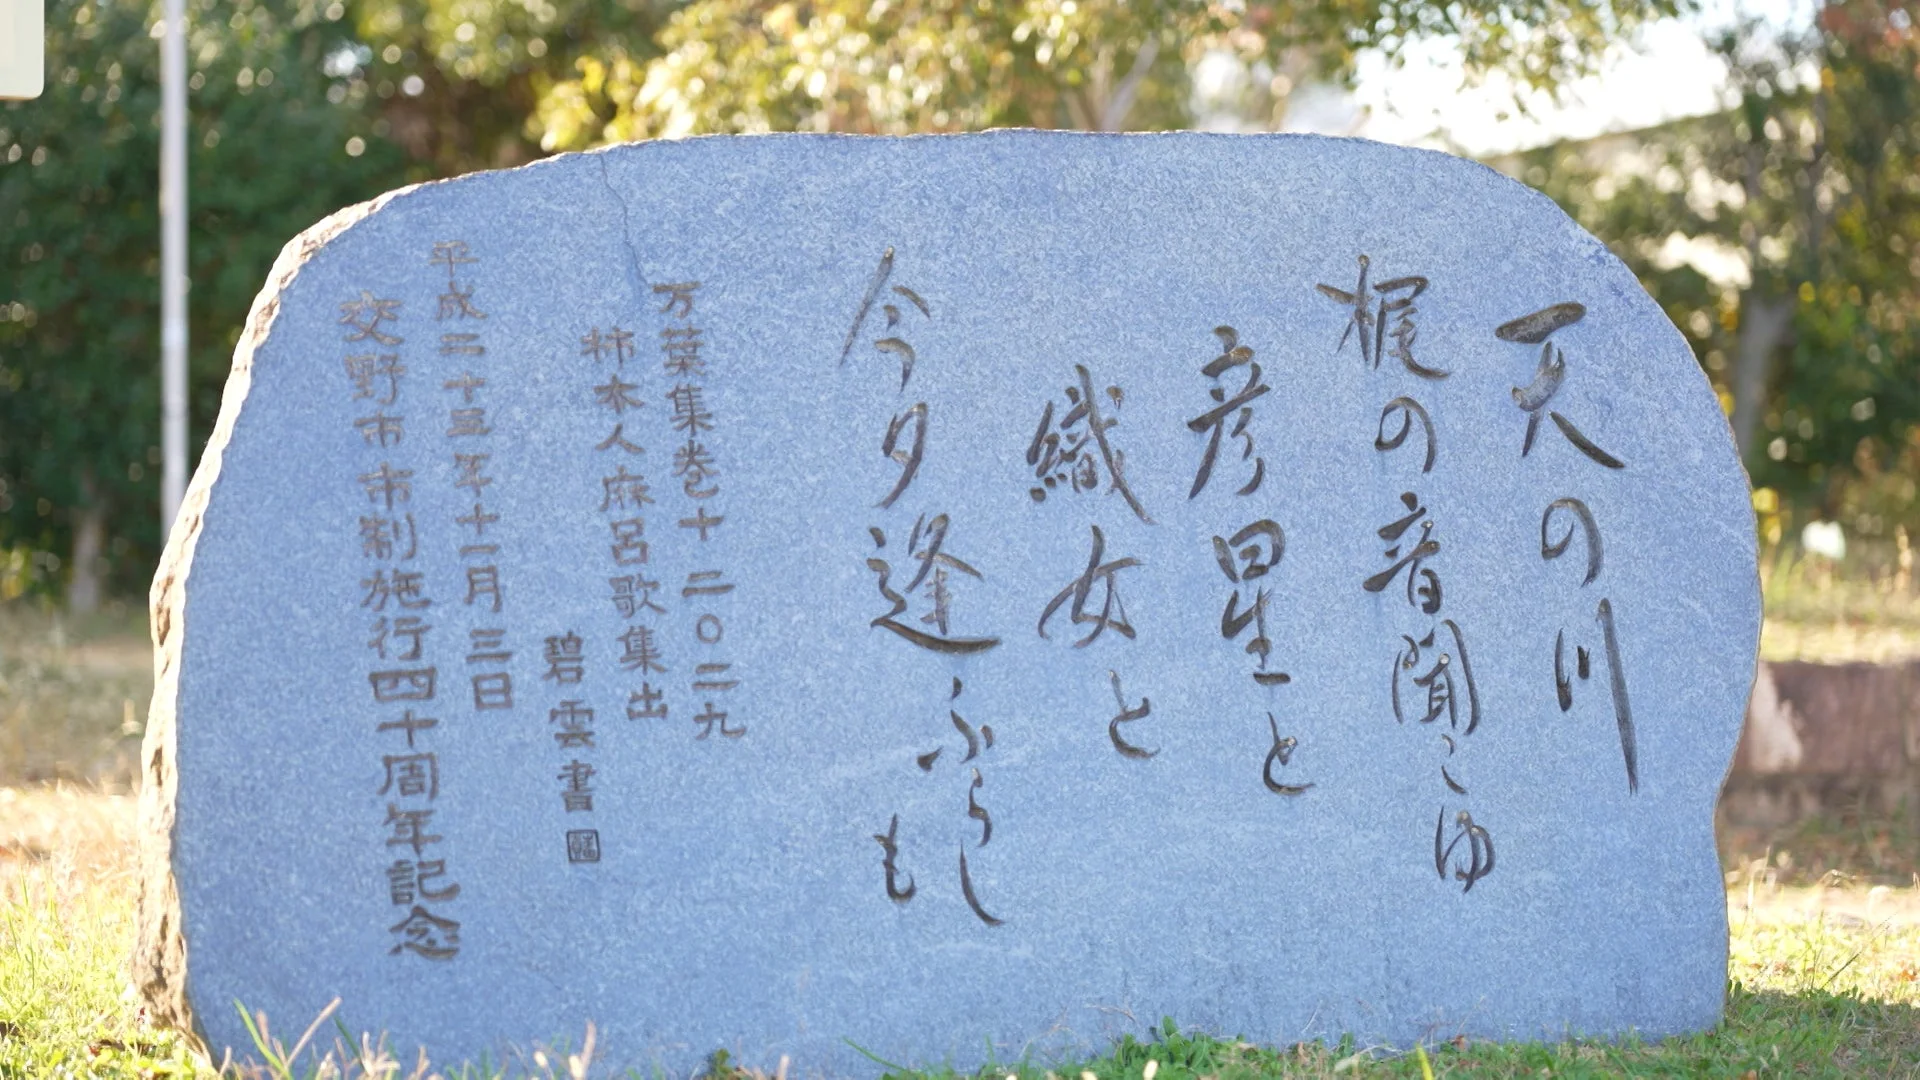 天の川
梶の音聞こゆ
彦星と
織女と
今夕逢ふらし
も
万葉集巻十 二〇二九
柿本人麻呂歌集出
碧雲書
平成二十三年十一月三日
交野市市制施行四十周年記念